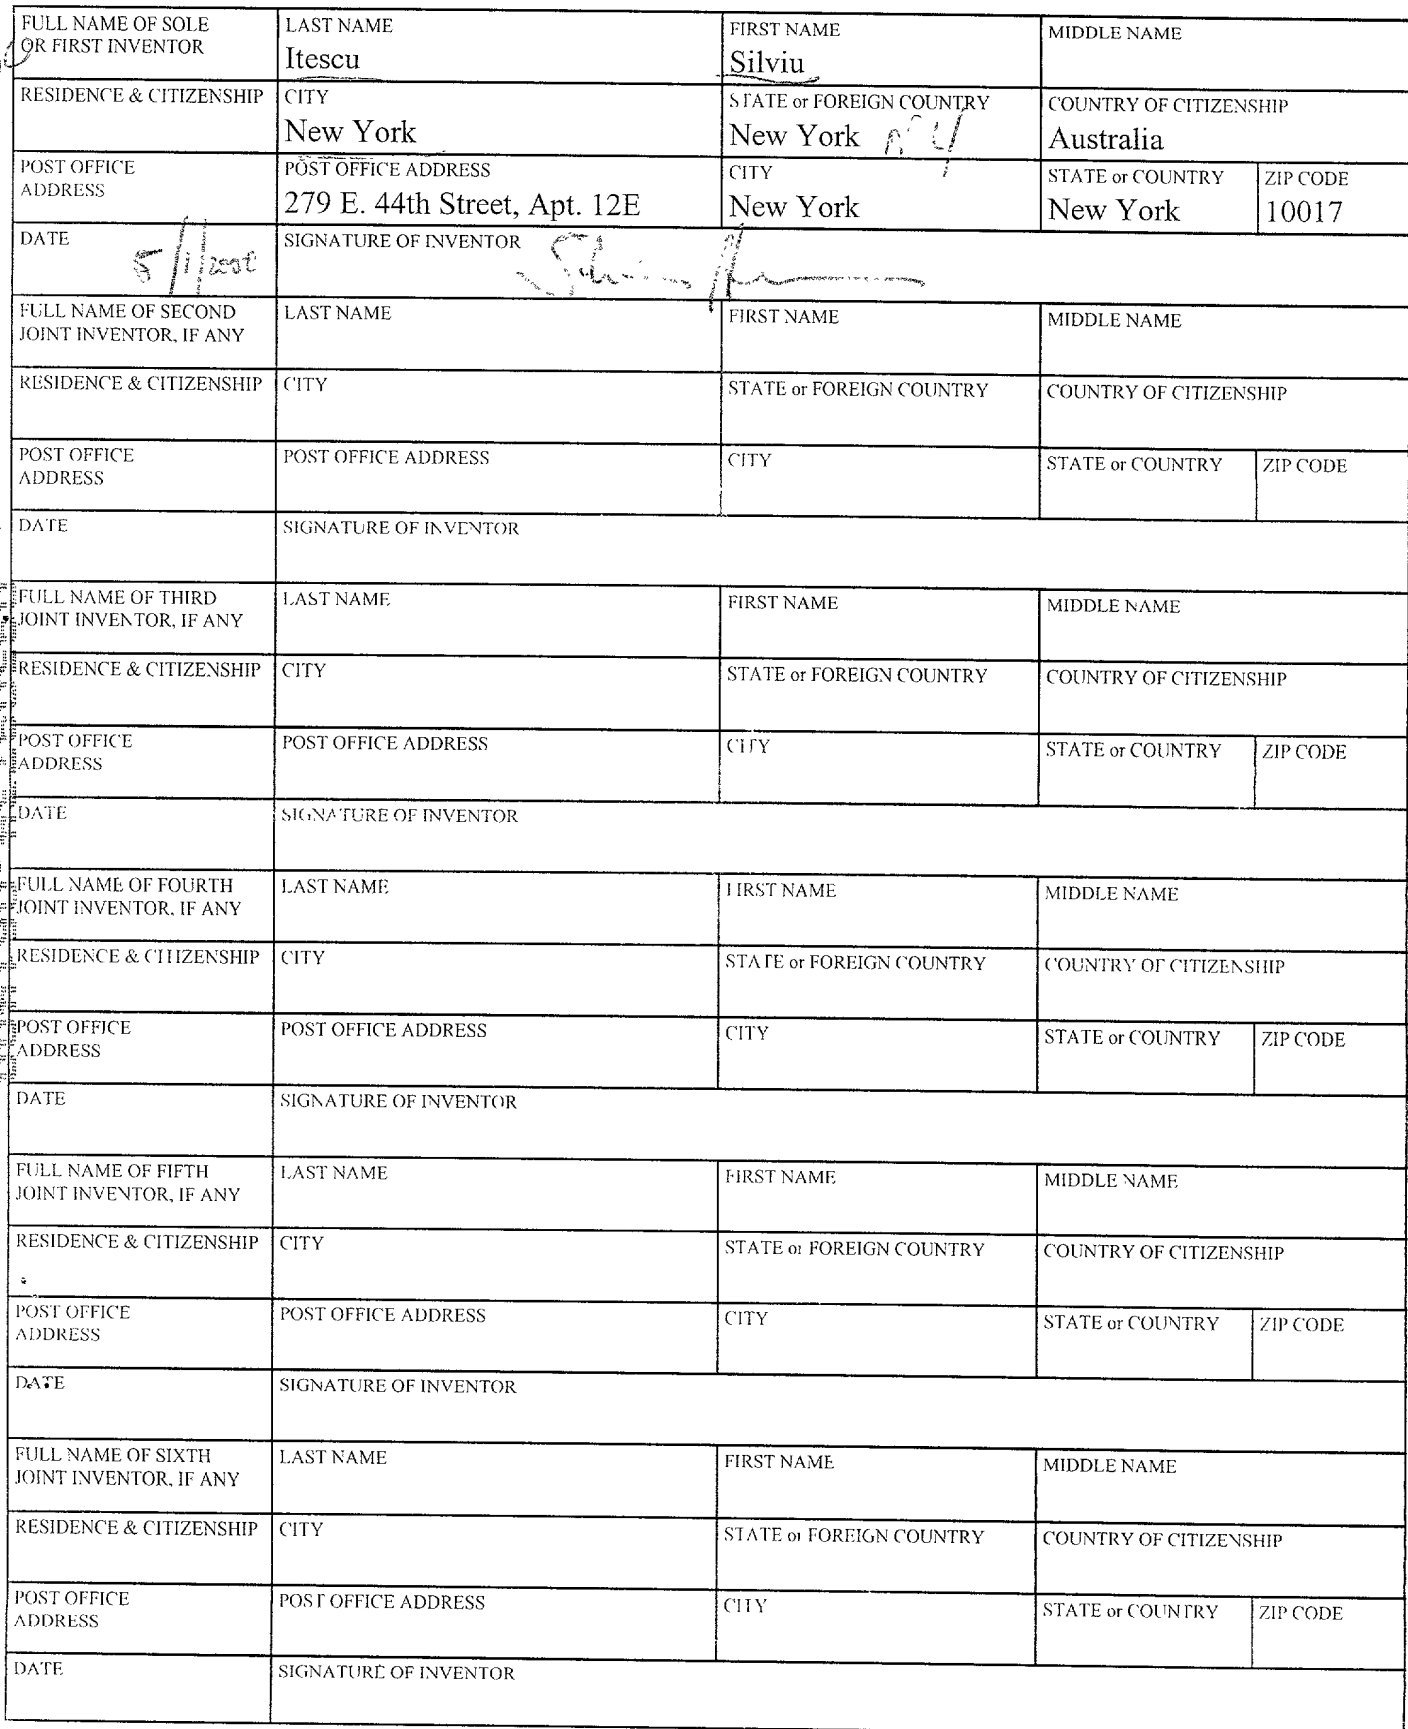 FULL NAME OF SOLE OR FIRST INVENTOR
LAST NAME
Itescu
FIRST NAME
Silviu
MIDDLE NAME
RESIDENCE & CITIZENSHIP
CITY
New York
STATE or FOREIGN COUNTRY
New York NY
COUNTRY OF CITIZENSHIP
Australia
POST OFFICE ADDRESS
POST OFFICE ADDRESS
279 E. 44th Street, Apt. 12E
CITY
New York
STATE or COUNTRY
New York
ZIP CODE
10017
DATE
5/1/
SIGNATURE OF INVENTOR
FULL NAME OF SECOND JOINT INVENTOR, IF ANY
LAST NAME
FIRST NAME
MIDDLE NAME
RESIDENCE & CITIZENSHIP
CITY
STATE or FOREIGN COUNTRY
COUNTRY OF CITIZENSHIP
POST OFFICE ADDRESS
POST OFFICE ADDRESS
CITY
STATE or COUNTRY
ZIP CODE
DATE
SIGNATURE OF INVENTOR
FULL NAME OF THIRD JOINT INVENTOR, IF ANY
LAST NAME
FIRST NAME
MIDDLE NAME
RESIDENCE & CITIZENSHIP
CITY
STATE or FOREIGN COUNTRY
COUNTRY OF CITIZENSHIP
POST OFFICE ADDRESS
POST OFFICE ADDRESS
CITY
STATE or COUNTRY
ZIP CODE
DATE
SIGNATURE OF INVENTOR
FULL NAME OF FOURTH JOINT INVENTOR, IF ANY
LAST NAME
FIRST NAME
MIDDLE NAME
RESIDENCE & CITIZENSHIP
CITY
STATE or FOREIGN COUNTRY
COUNTRY OF CITIZENSHIP
POST OFFICE ADDRESS
POST OFFICE ADDRESS
CITY
STATE or COUNTRY
ZIP CODE
DATE
SIGNATURE OF INVENTOR
FULL NAME OF FIFTH JOINT INVENTOR, IF ANY
LAST NAME
FIRST NAME
MIDDLE NAME
RESIDENCE & CITIZENSHIP
CITY
STATE or FOREIGN COUNTRY
COUNTRY OF CITIZENSHIP
POST OFFICE ADDRESS
POST OFFICE ADDRESS
CITY
STATE or COUNTRY
ZIP CODE
DATE
SIGNATURE OF INVENTOR
FULL NAME OF SIXTH JOINT INVENTOR, IF ANY
LAST NAME
FIRST NAME
MIDDLE NAME
RESIDENCE & CITIZENSHIP
CITY
STATE or FOREIGN COUNTRY
COUNTRY OF CITIZENSHIP
POST OFFICE ADDRESS
POST OFFICE ADDRESS
CITY
STATE or COUNTRY
ZIP CODE
DATE
SIGNATURE OF INVENTOR